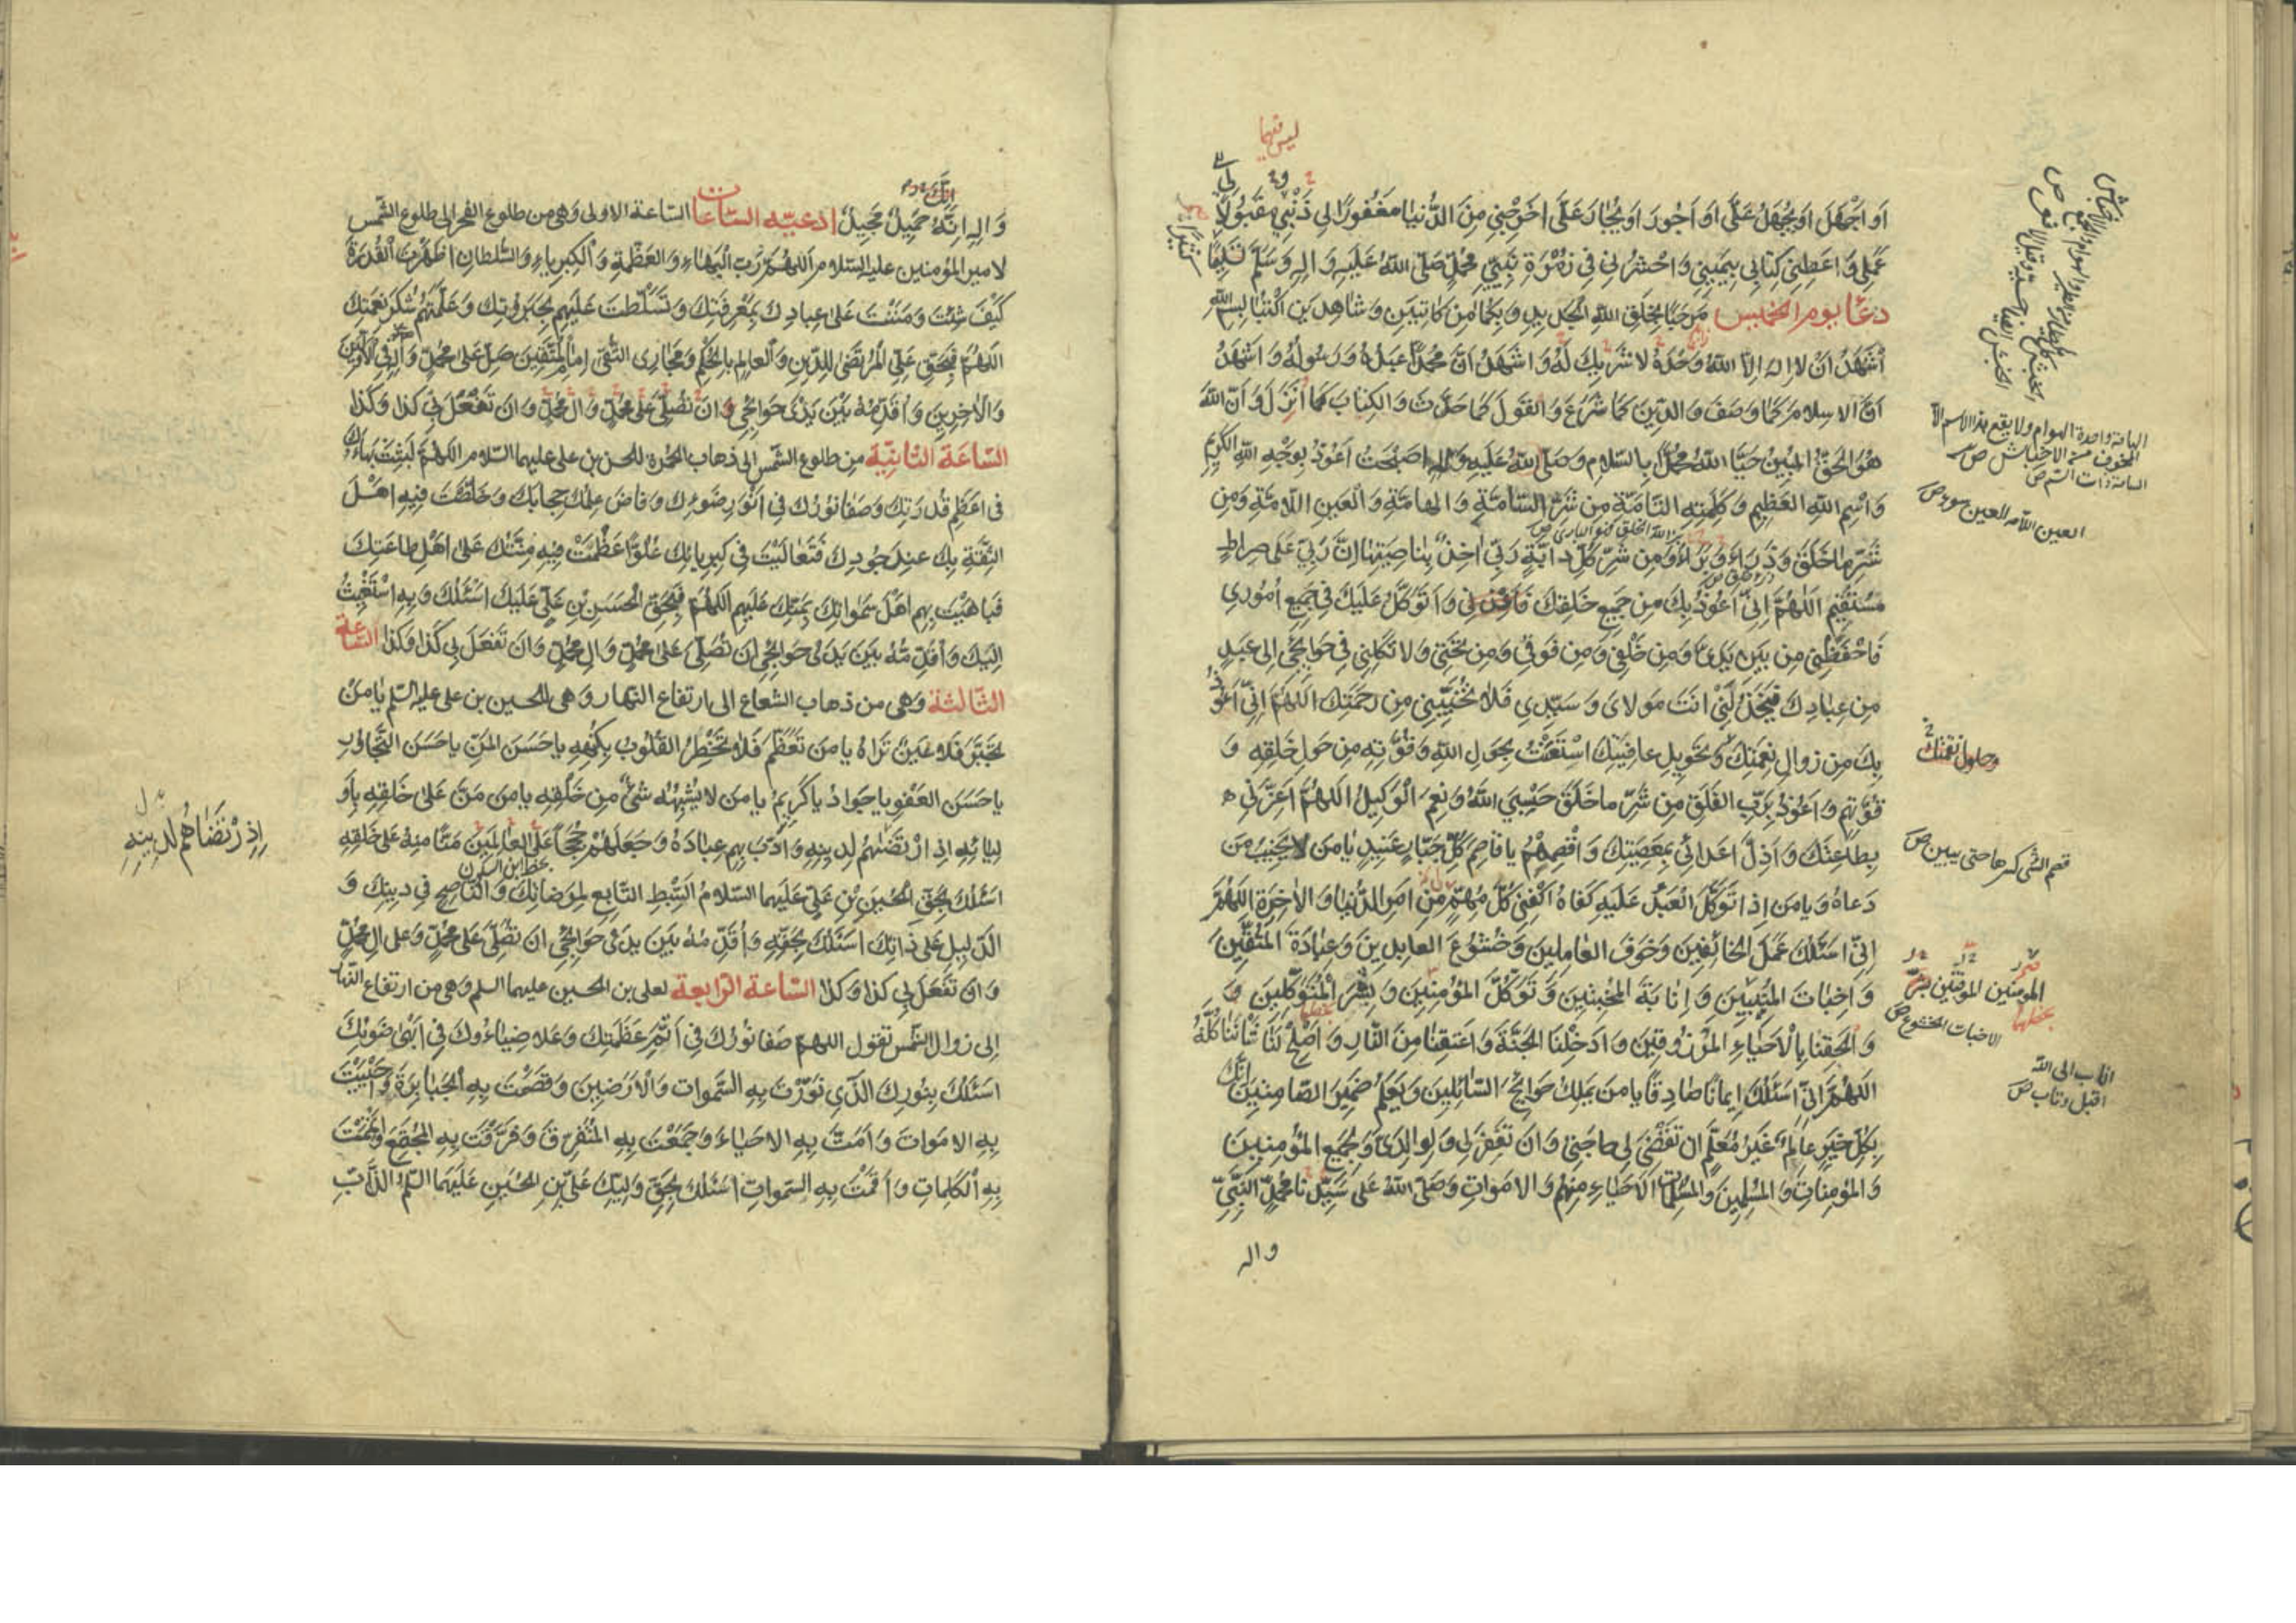 اَو اَجْهَلَ اَو يُجْهَلَ عَلَيَّ اَو اَجُورَ اَو يُجَارَ عَلَيَّ اَخْرِجْنِي مِنَ الدُّنيَا مَغفُورًا لِي ذَنْبِي مَقبُولًا
عَمَلِي وَ اعطِنِي كِتَابِي بِيَمِينِي وَ احْشُرْنِي فِي زُمْرَةِ نَبِيِّي مُحَمَّدٍ صَلَّى اللهُ عَلَيهِ وَ الِهِ وَ سَلَّمَ تَسْلِيمًا
دعَا يوم الخميس مَرحَبًا بِخَلقِ اللهِ الجَدِيدِ وَ بِكُمَا مِن كَاتِبَينِ وَ شَاهِدَينِ اكْتُبَا بِسمِ اللهِ
اَشْهَدُ اَنْ لَا اِلهَ اِلَّا اللهُ وَحْدَهُ لَا شَرِيكَ لَهُ وَ اَشهَدُ اَنَّ مُحَمَّدًا عَبدُهُ وَ رَسُولُهُ وَ اَشْهَدُ
اَنَّ الاسلَامَ كَمَا وَصَفَ وَ الدِّينَ كَمَا شَرَعَ وَ القَولَ كَمَا حَدَّثَ وَ الكِتابَ كَمَا اَنزَلَ وَ اَنَّ اللهَ
هُوَ الحَقُّ المُبِينُ حَيَّا اللهُ مُحَمَّدًا بِالسَّلَامِ وَ صَلَّى اللهُ عَلَيهِ وَ الِهِ اَصبَحتُ اَعُوذُ بِوَجْهِ اللهِ الكَرِيمِ
وَ اسْمِ اللهِ العَظِيمِ وَ كَلِمَتِهِ التَّامَّةِ مِن شَرِّ السَّامَّةِ وَ الهَامَّةِ وَ العَينِ اللَّامَّةِ وَ مِن
شَرِّ مَا خَلَقَ وَ ذَرَاَ وَ بَرَاَ وَ مِن شَرِّ كُلِّ دَابَّةٍ رَبِّي اخِذٌ بِنَاصِيَتِهَا اِنَّ رَبِّي عَلَى صِرَاطٍ
مُسْتَقِيمٍ اَللّهُمَّ اِنِّي اَعُوذُ بِكَ مِن جَمِيعِ خَلقِكَ وَ اَتَوَكَّلُ عَلَيكَ فِي جَمِيعِ اُمُورِي
فَاحْفَظْنِي مِن بَينِ يَدَيَّ وَ مِن خَلْفِي وَ مِن فَوقِي وَ مِن تَحْتِي وَ لَا تَكِلْنِي فِي حَوَائِجِي اِلَى عَبدٍ
مِن عِبَادِكَ فَيَخْذُلَنِي اَنتَ مَولَايَ وَ سَيِّدِي فَلَا تُخَيِّبْنِي مِن رَحمَتِكَ اَللّهُمَّ اِنِّي اَعُوذُ
بِكَ مِن زَوَالِ نِعْمَتِكَ وَ تَحْوِيلِ عَافِيَتِكَ اسْتَعَنْتُ بِحَولِ اللهِ وَ قُوَّتِهِ مِن حَولِ خَلقِهِ وَ
قُوَّتِهِم وَ اَعُوذُ بِرَبِّ الفَلَقِ مِن شَرِّ مَا خَلَقَ حَسْبِيَ اللهُ وَ نِعمَ الوَكِيلُ اَللّهُمَّ اَعِزَّنِي
بِطَاعَتِكَ وَ اَذِلَّ اَعدَائِي بِمَعصِيَتِكَ وَ اقْصِمْهُم يَا قَاصِمَ كُلِّ جَبَّارٍ عَنِيدٍ يَا مَن لَا يَخِيبُ مَن
دَعَاهُ وَ يَا مَن اِذَا تَوَكَّلَ العَبدُ عَلَيهِ كَفَاهُ اكْفِنِي كُلَّ مُهِمٍّ مِن اَمرِ الدُّنيَا وَ الاخِرَةِ اَللّهُمَّ
اِنِّي اَسئَلُكَ عَمَلَ الخَائِفِينَ وَ خَوفَ العَامِلِينَ وَ خُشُوعَ العَابِدِينَ وَ عِبَادَةَ المُتَّقِينَ
وَ اِخبَاتَ المُنِيبِينَ وَ اِنَابَةَ المُخْبِتِينَ وَ تَوَكُّلَ المُؤمِنِينَ وَ بِشْرَ المُتَوَكِّلِينَ وَ
وَ اَلحِقنَا بِالاَحيَاءِ المَرزُوقِينَ وَ اَدخِلْنَا الجَنَّةَ وَ اَعتِقنَا مِنَ النَّارِ وَ اَصلِح لَنَا شَأنَنَا كُلَّهُ
اَللّهُمَّ اِنِّي اَسئَلُكَ اِيمَانًا صَادِقًا يَا مَن يَملِكُ حَوَائِجَ السَّائِلِينَ وَ يَعلَمُ ضَمِيرَ الصَّامِتِينَ اِنَّكَ
بِكُلِّ خَيرٍ عَالِمٌ غَيرُ مُعَلَّمٍ اَن تَقْضِيَ لِي حَاجَتِي وَ اَن تَغفِرَ لِي وَ لِوَالِدَيَّ وَ لِجَمِيعِ المُؤمِنِينَ
وَ المُؤمِنَاتِ وَ المُسلِمِينَ وَ المُسلِمَاتِ الاَحيَاءِ مِنهُم وَ الاَموَاتِ وَ صَلَّى اللهُ عَلَى سَيِّدِنَا مُحَمَّدٍ النَّبِيِّ
واله
ليس فيهما
البامة واحدة الهوام ولا يقع هذا الاسم الا
المخوف من الاحناش ص
السامة ذات السم ص
العين اللامة العين سوء ص
وحلول نقمتك
قصم الشئ كسرها حتى يبين ص
المؤمنين الموقنين بشر
الاخبات الخشوع ص
اناب الى الله
اقبل وتاب ص
وَ الِهِ اِنَّهُ حَمِيدٌ مَجِيدٌ ادعيّه السّاعات السّاعة الاولى وَ هي من طلوع الفجر الى طلوع الشّمس
لامير المؤمنين عليه السّلام اَللّهُمَّ رَبَّ البَهَاءِ وَ العَظَمَةِ وَ الكِبرِيَاءِ وَ السُّلطَانِ اَظهَرتَ القُدرَةَ
كَيفَ شِئتَ وَ مَنَنْتَ عَلَى عِبَادِكَ بِمَعرِفَتِكَ وَ تَسَلَّطتَ عَلَيهِم بِجَبَرُوتِكَ وَ عَلَّمتَهُم شُكرَ نِعمَتِكَ
اَللّهُمَّ فَبِحَقِّ عَلِيٍّ المُرتَضَى لِلدِّينِ وَ العَالِمِ بِالحُكمِ وَ مَجَارِي التُّقَى اِمَامِ المُتَّقِينَ صَلِّ عَلَى مُحَمَّدٍ وَ الِهِ فِي الاَوَّلِينَ
وَ الاخِرِينَ وَ اُقَدِّمُهُ بَينَ يَدَي حَوَائِجِي وَ اَن تُصَلِّيَ عَلَى مُحَمَّدٍ وَ الِ مُحَمَّدٍ وَ اَن تَفعَلَ بِي كَذَا وَ كَذَا
السّاعَة الثّانِيَة مِن طلوع الشّمس الى ذهاب الحُمرة للحسن بن على عليهما السّلام اَللّهُمَّ لَبِسْتَ بَهَاءَكَ
فِي اَعظَمِ قُدرَتِكَ وَ صَفَا نُورُكَ فِي اَنوَرِ ضَوئِكَ وَ فَاضَ عِلمُكَ حِجَابَكَ وَ خَلَّصْتَ فِيهِ اَهلَ
الثِّقَةِ بِكَ عِندَ جُودِكَ فَتَعَالَيتَ فِي كِبرِيَائِكَ عُلُوًّا عَظُمَتْ فِيهِ مِنَّتُكَ عَلَى اَهلِ طَاعَتِكَ
فَبَاهَيتَ بِهِم اَهلَ سَمَوَاتِكَ بِمِنَّتِكَ عَلَيهِم اَللّهُمَّ فَبِحَقِّ الحَسَنِ بنِ عَلِيٍّ عَلَيكَ اَسئَلُكَ وَ بِهِ اَستَغِيثُ
اِلَيكَ وَ اُقَدِّمُهُ بَينَ يَدَي حَوَائِجِي اَن تُصَلِّيَ عَلَى مُحَمَّدٍ وَ الِ مُحَمَّدٍ وَ اَن تَفعَلَ بِي كَذَا وَ كَذَا السّاعة
الثّالثة وَ هى من ذهاب الشعاع الى ارتفاع النهار و هى للحسين بن على عليه السّلم يَا مَن
تَجَبَّرَ فَلَا عَينٌ تَرَاهُ يَا مَن تَعَظَّمَ فَلَا تَخطُرُ القُلُوبُ بِكُنهِهِ يَا حَسَنَ المَنِّ يَا حَسَنَ التَّجَاوُزِ
يَا حَسَنَ العَفوِ يَا جَوَادُ يَا كَرِيمُ يَا مَن لَا يُشبِهُهُ شَئٌ مِن خَلقِهِ يَا مَن مَنَّ عَلَى خَلقِهِ بِاَو
لِيَائِهِ اِذِ ارتَضَاهُم لِدِينِهِ وَ اَدَّبَ بِهِم عِبَادَهُ وَ جَعَلَهُم حُجَجًا عَلَى العَالَمِينَ مَنًّا مِنهُ عَلَى خَلقِهِ
اَسئَلُكَ بِحَقِّ الحُسَينِ بنِ عَلِيٍّ عَلَيهِمَا السَّلَامُ السِّبطِ التَّابِعِ لِمَرضَاتِكَ وَ النَّاصِحِ فِي دِينِكَ وَ
الدَّلِيلِ عَلَى ذَاتِكَ اَسئَلُكَ بِحَقِّهِ وَ اُقَدِّمُهُ بَينَ يَدَي حَوَائِجِي اَن تُصَلِّيَ عَلَى مُحَمَّدٍ وَ عَلَى الِ مُحَمَّدٍ
وَ اَن تَفعَلَ بِي كَذَا وَ كَذَا السّاعة الرّابعة لعلى بن الحسين عليهما السلم وَ هى من ارتفاع النّهار
الى زوال الشّمس تقول اللهم صَفَا نُورُكَ فِي اَتَمِّ عَظَمَتِكَ وَ عَلَا ضِيَاءُوكَ فِي اَبهَى ضَوئِكَ
اَسئَلُكَ بِنُورِكَ الَّذِي نَوَّرتَ بِهِ السَّمَوَاتِ وَ الاَرَضِينَ وَ قَصَمْتَ بِهِ الجَبَابِرَةَ وَ اَحيَيتَ
بِهِ الاَموَاتَ وَ اَمَتَّ بِهِ الاَحيَاءَ وَ جَمَعتَ بِهِ المُتَفَرِّقَ وَ فَرَّقتَ بِهِ المُجتَمِعَ وَ اَتمَمتَ
بِهِ الكَلِمَاتِ وَ اَقَمتَ بِهِ السَّمَوَاتِ اَسئَلُكَ بِحَقِّ وَلِيِّكَ عَلِيِّ بنِ الحُسَينِ عَلَيهِمَا السَّلمُ الذَّابِّ
اِذِ ارْتَضَاهُم لِدِينِهِ